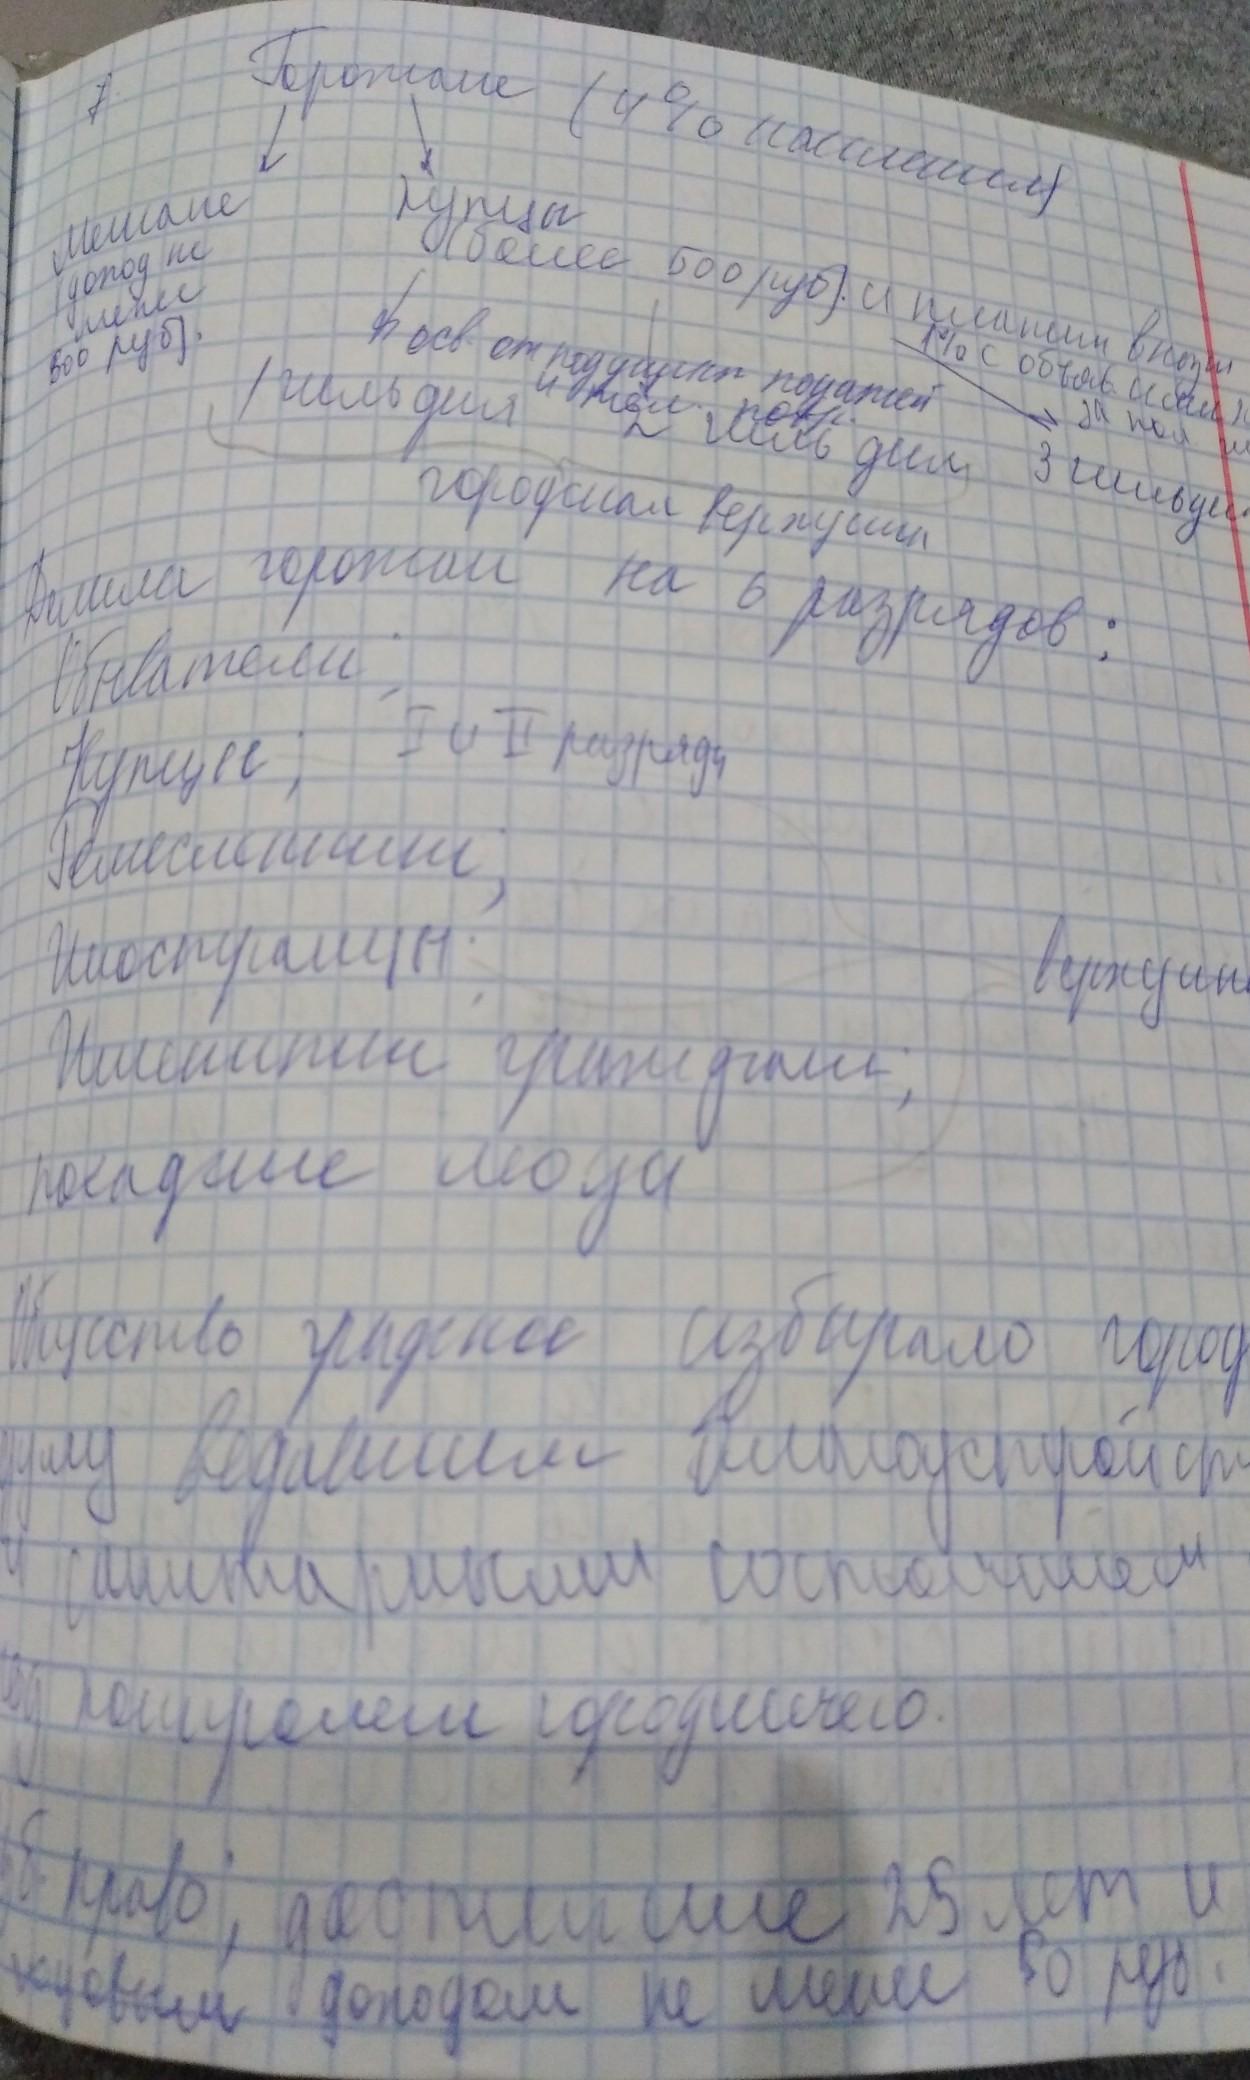 Горожане (4% населения)
Мещане
(доход не
менее
500 руб).
Купцы
(более 500 руб). и платили в казну
1% с объяв.
осв от подушной податей
и
1 гильдия
2 гильдия
3 гильдия
городская верхушка
Делила горожан на 6 разрядов:
Обыватели;
Купцы; I и II разряды
Ремесленники;
Иностранцы;
верхушка
Именитые граждане;
посадские люди
Общество градское избирало город
думу ведавшим благоустройств
и санитарными состоянием
под контролем городничего.
право, достигшие 25 лет и
доходом не менее 50 руб.